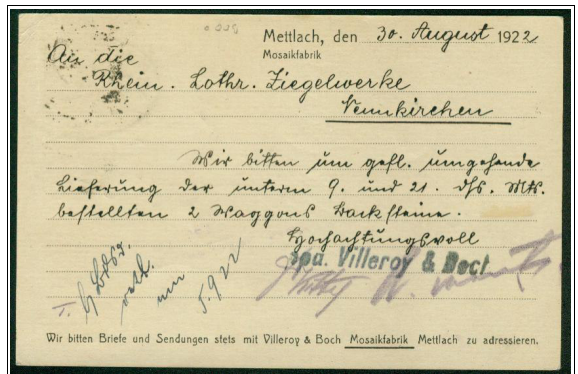 Mettlach, den 30. August 1922
Mosaikfabrik
An die
Rhein. Lothr. Ziegelwerke
Neunkirchen
Wir bitten um gefl. umgehende
Lieferung der unterm 9. und 21. dfs. Mts.
bestellten 2 Waggons Backsteine.
Hochachtungsvoll
ppa. Villeroy & Boch
5.9.22
Wir bitten Briefe und Sendungen stets mit Villeroy & Boch Mosaikfabrik Mettlach zu adressieren.